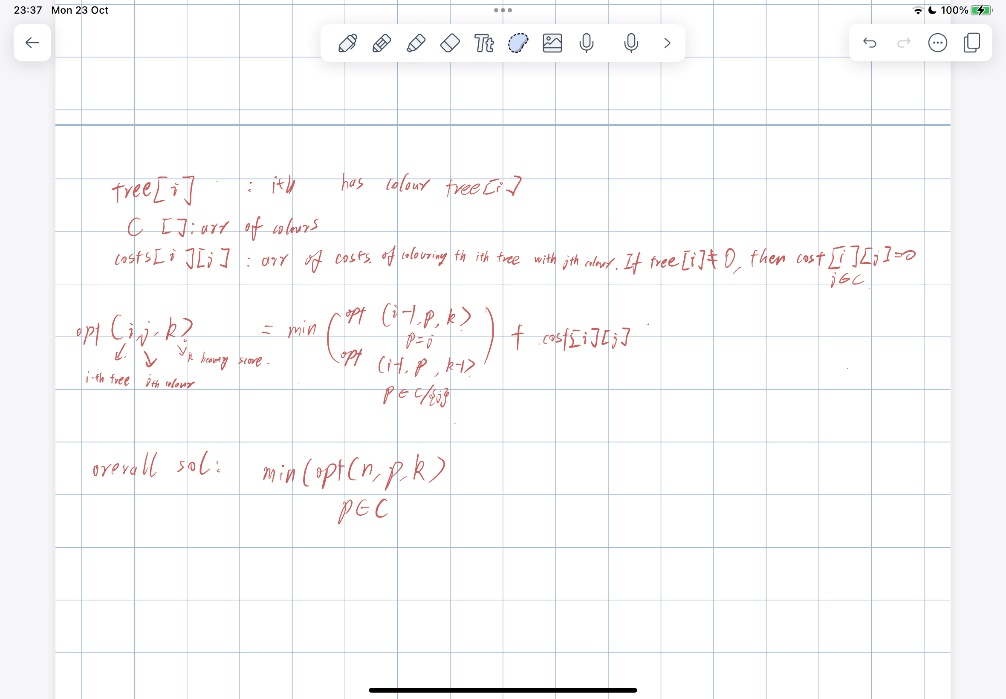 23:37 Mon 23 Oct
100%
Tt
tree[i] : ith has colour tree[i]
C []: arr of colours
costs[i][j] : arr of costs of colouring th ith tree with jth colour. If tree[i]≠0, then cost[i][j]=0
j∈C
opt(i,j,k) = min( opt(i-1,p,k) p=j
opt(i-1,p,k-1) p∈C/{j} ) + cost[i][j]
i-th tree jth colour k beauty score.
overall sol: min(opt(n,p,k)
p∈C